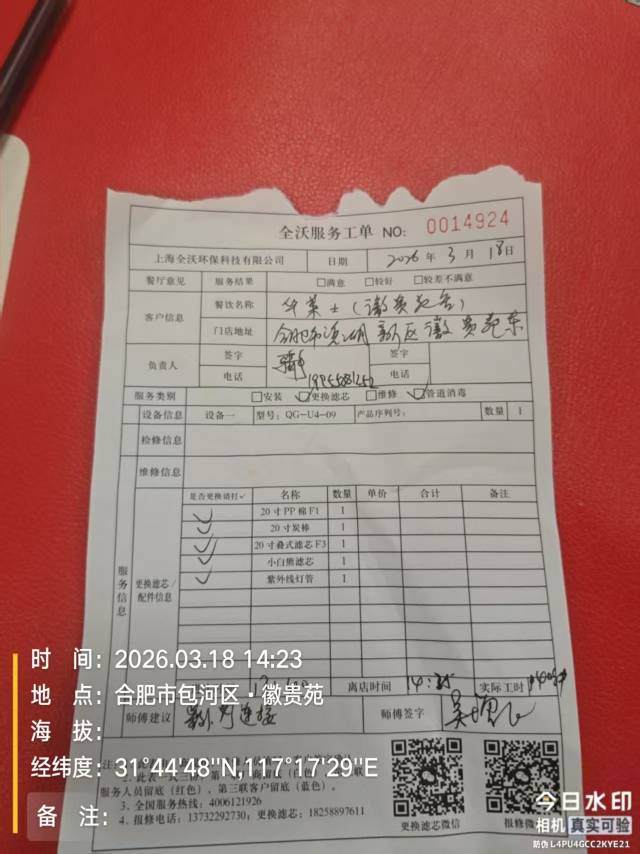 全沃服务工单 NO: 0014924
上海全沃环保科技有限公司 日期 2026 年 3 月 18 日
餐厅意见 服务结果 □满意 □较好 □较差不满意
客户信息 餐饮名称 华莱士(徽贵苑店)
门店地址 合肥市滨湖新区徽贵苑东
负责人 签字 签字
电话 电话
服务类别 □安装 ☑更换滤芯 □维修 ☑管道消毒
设备信息 设备一 型号: QG-U4-09 产品序列号: 数量 1
检修信息
维修信息
服务信息
更换滤芯/配件信息
是否更换请打✓ 名称 数量 单价 合计 备注
✓ 20寸PP棉F1 1
✓ 20寸炭棒 1
✓ 20寸叠式滤芯F3 1
✓ 小白熊滤芯 1
✓ 紫外线灯管 1
离店时间 14:25 实际工时
师傅建议 师傅签字
服务人员留底(红色),第三联客户留底(蓝色)。
3. 全国服务热线: 4006121926
4. 报修电话: 13732292730, 更换滤芯: 18258897611
更换滤芯微信 报修微信
时 间: 2026.03.18 14:23
地 点: 合肥市包河区·徽贵苑
海 拔:
经纬度: 31°44'48"N,117°17'29"E
备 注:
今日水印
相机 真实可验
防伪 L4PU4GCC2KYE21